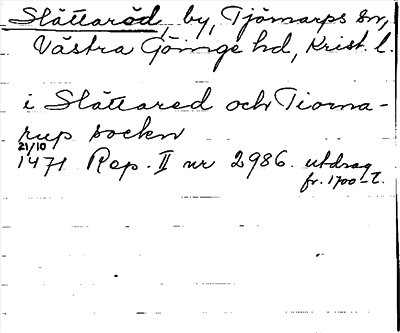 Slättaröd, by, Tjörnarps sn,
Västra Göinge hd, Krist. l.
i Slättared och Tiorna-
rup sockn
21/10
1471 Rep. II nr 2986. utdrag
fr. 1700-t.